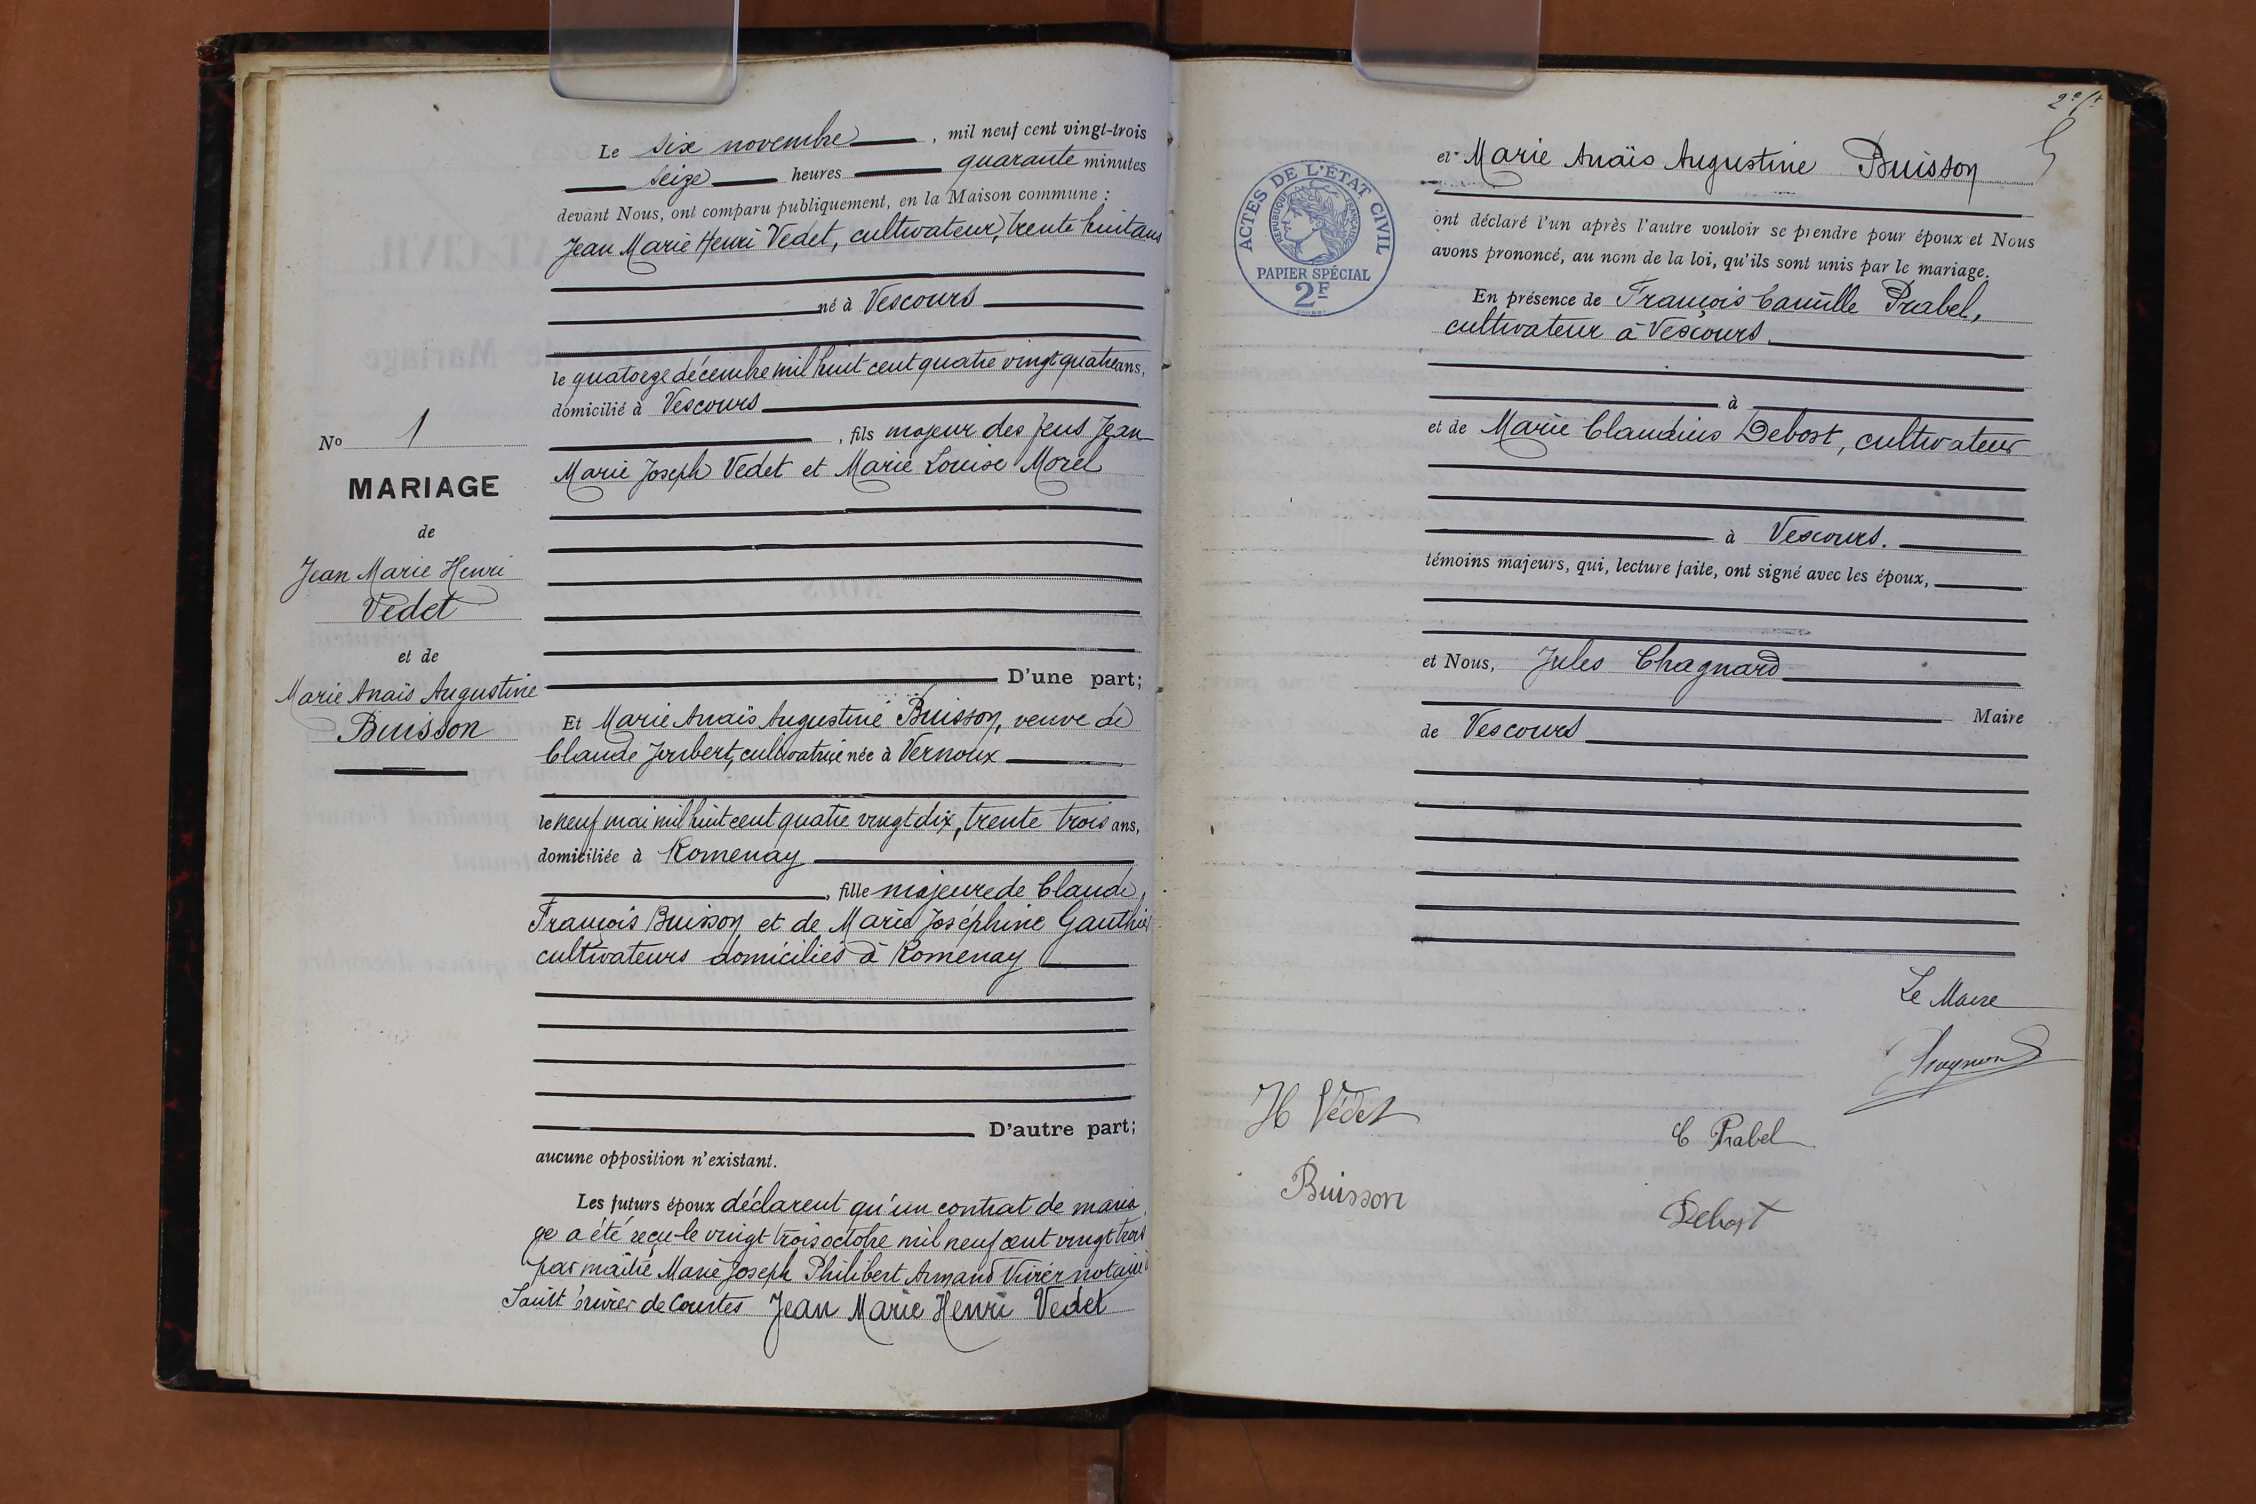 Le six novembre, mil neuf cent vingt-trois
seize heures quarante minutes
devant Nous, ont comparu publiquement, en la Maison commune :
Jean Marie Henri Vedet, cultivateur, trente huit ans
né à Vescours
le quatorze décembre mil huit cent quatre vingt quatre ans,
domicilié à Vescours
, fils majeur des feus Jean
Marie Joseph Vedet et Marie Louise Morel
D'une part;
Et Marie Anaïs Augustine Buisson, veuve de
Claude Joubert, cultivatrice née à Vernoux
le neuf mai mil huit cent quatre vingt dix, trente trois ans,
domiciliée à Romenay
, fille majeure de Claude,
François Buisson et de Marie Joséphine Gauthier
cultivateurs domiciliés à Romenay
D'autre part;
aucune opposition n'existant.
Les futurs époux déclarent qu'un contrat de maria
ge a été reçu le vingt trois octobre mil neuf cent vingt trois
par maître Marie Joseph Philibert Armand notaire à
de Courtes Jean Marie Henri Vedet
No 1
MARIAGE
de
Jean Marie Henri
Vedet
et de
Marie Anaïs Augustine
Buisson
2e
ACTES DE L'ÉTAT CIVIL
RÉPUBLIQUE FRANÇAISE
PAPIER SPÉCIAL
2F
et Marie Anaïs Augustine Buisson
ont déclaré l'un après l'autre vouloir se prendre pour époux et Nous
avons prononcé, au nom de la loi, qu'ils sont unis par le mariage.
En présence de François Camille Prabel,
cultivateur à Vescours
à
et de Marie Claudius Debost, cultivateur
à Vescours.
témoins majeurs, qui, lecture faite, ont signé avec les époux,
et Nous, Jules Chagnard
Maire
de Vescours
Le Maire
Chagnard
H Védet
C Prabel
Buisson
Debost